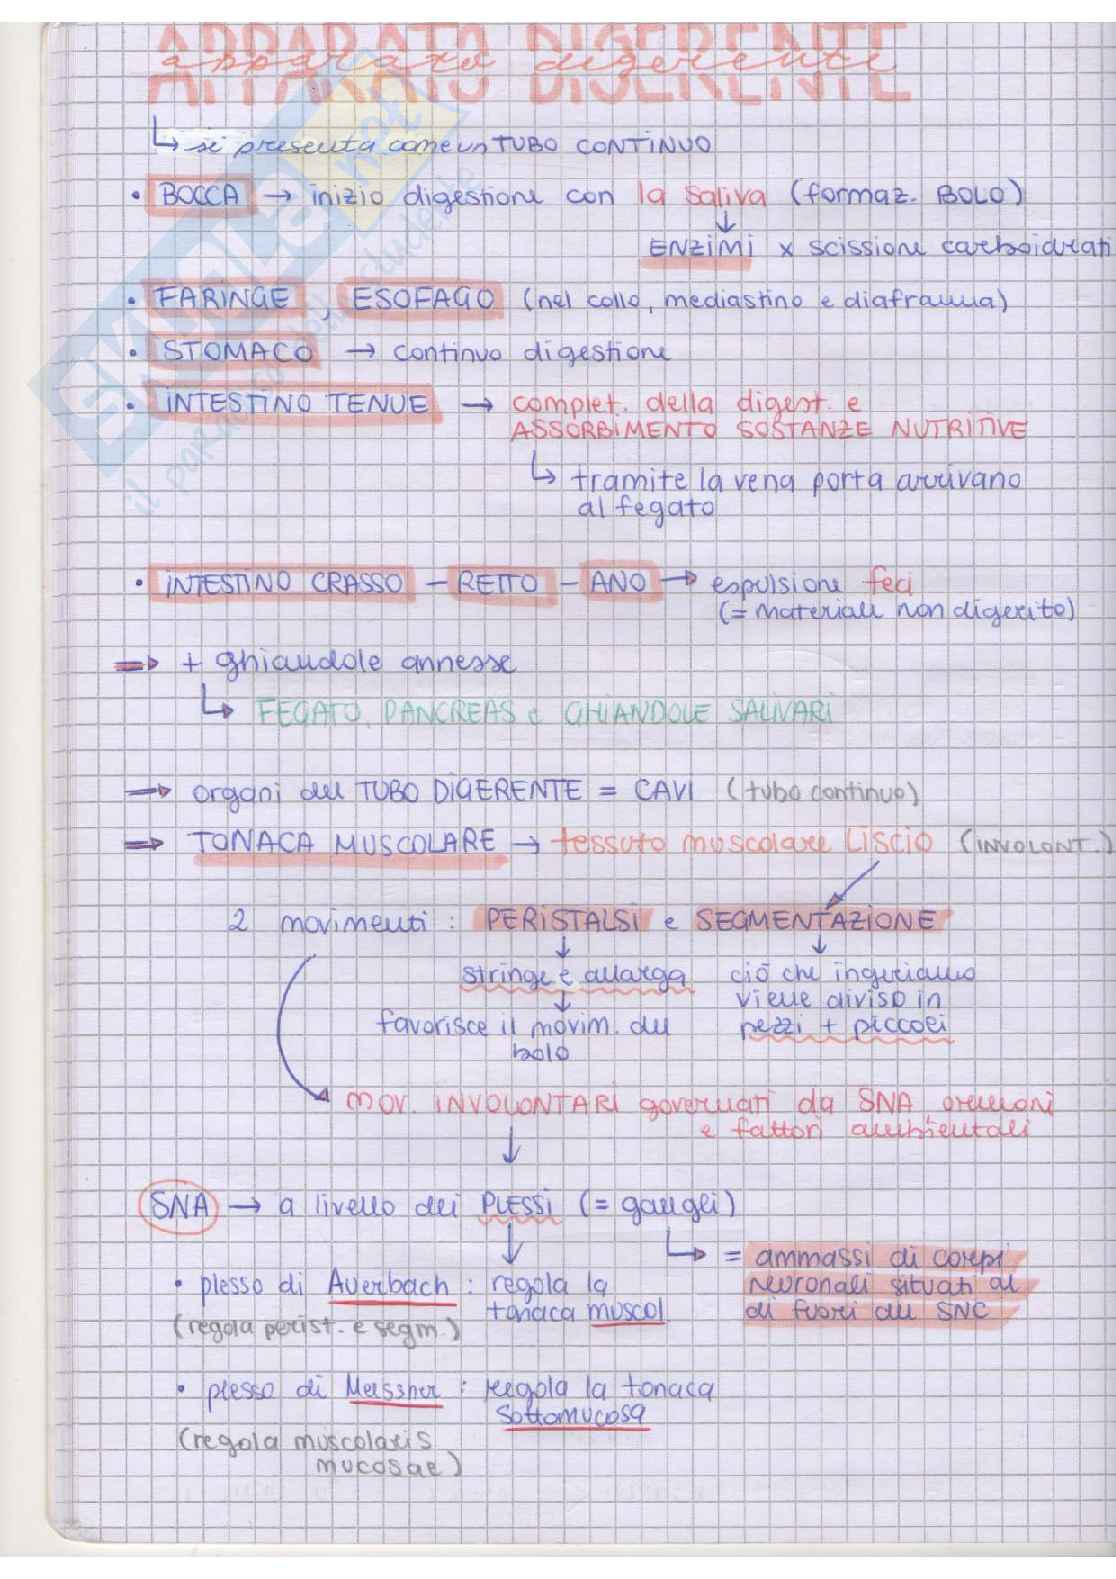 APPARATO DIGERENTE
apparato digerente
↳ si presenta come un TUBO CONTINUO
• BOCCA → inizio digestione con la saliva (formaz. BOLO)
↓
ENZIMI x scissione carboidrati
• FARINGE, ESOFAGO (nel collo, mediastino e diaframma)
• STOMACO → continuo digestione
• INTESTINO TENUE → complet. della digest. e
ASSORBIMENTO SOSTANZE NUTRITIVE
↳ tramite la vena porta arrivano
al fegato
• INTESTINO CRASSO - RETTO - ANO → espulsione feci
(= materiale non digerito)
⇒ + ghiandole annesse
↳ FEGATO, PANCREAS e GHIANDOLE SALIVARI
→ organi del TUBO DIGERENTE = CAVI (tubo continuo)
⇒ TONACA MUSCOLARE → tessuto muscolare LISCIO (INVOLONT.)
2 movimenti: PERISTALSI e SEGMENTAZIONE
↓ ↓
stringe e allarga ciò che ingeriamo
↓ viene diviso in
favorisce il movim. del pezzi + piccoli
bolo
MOV. INVOLONTARI governati da SNA, ormoni
e fattori ambientali
↓
SNA → a livello dei PLESSI (= gangli)
↓ ↳ = ammassi di corpi
• plesso di Auerbach: regola la neuronali situati al
tonaca muscol di fuori del SNC
(regola perist. e segm.)
• plesso di Meissner: regola la tonaca
sottomucosa
(regola muscolaris
mucosae)